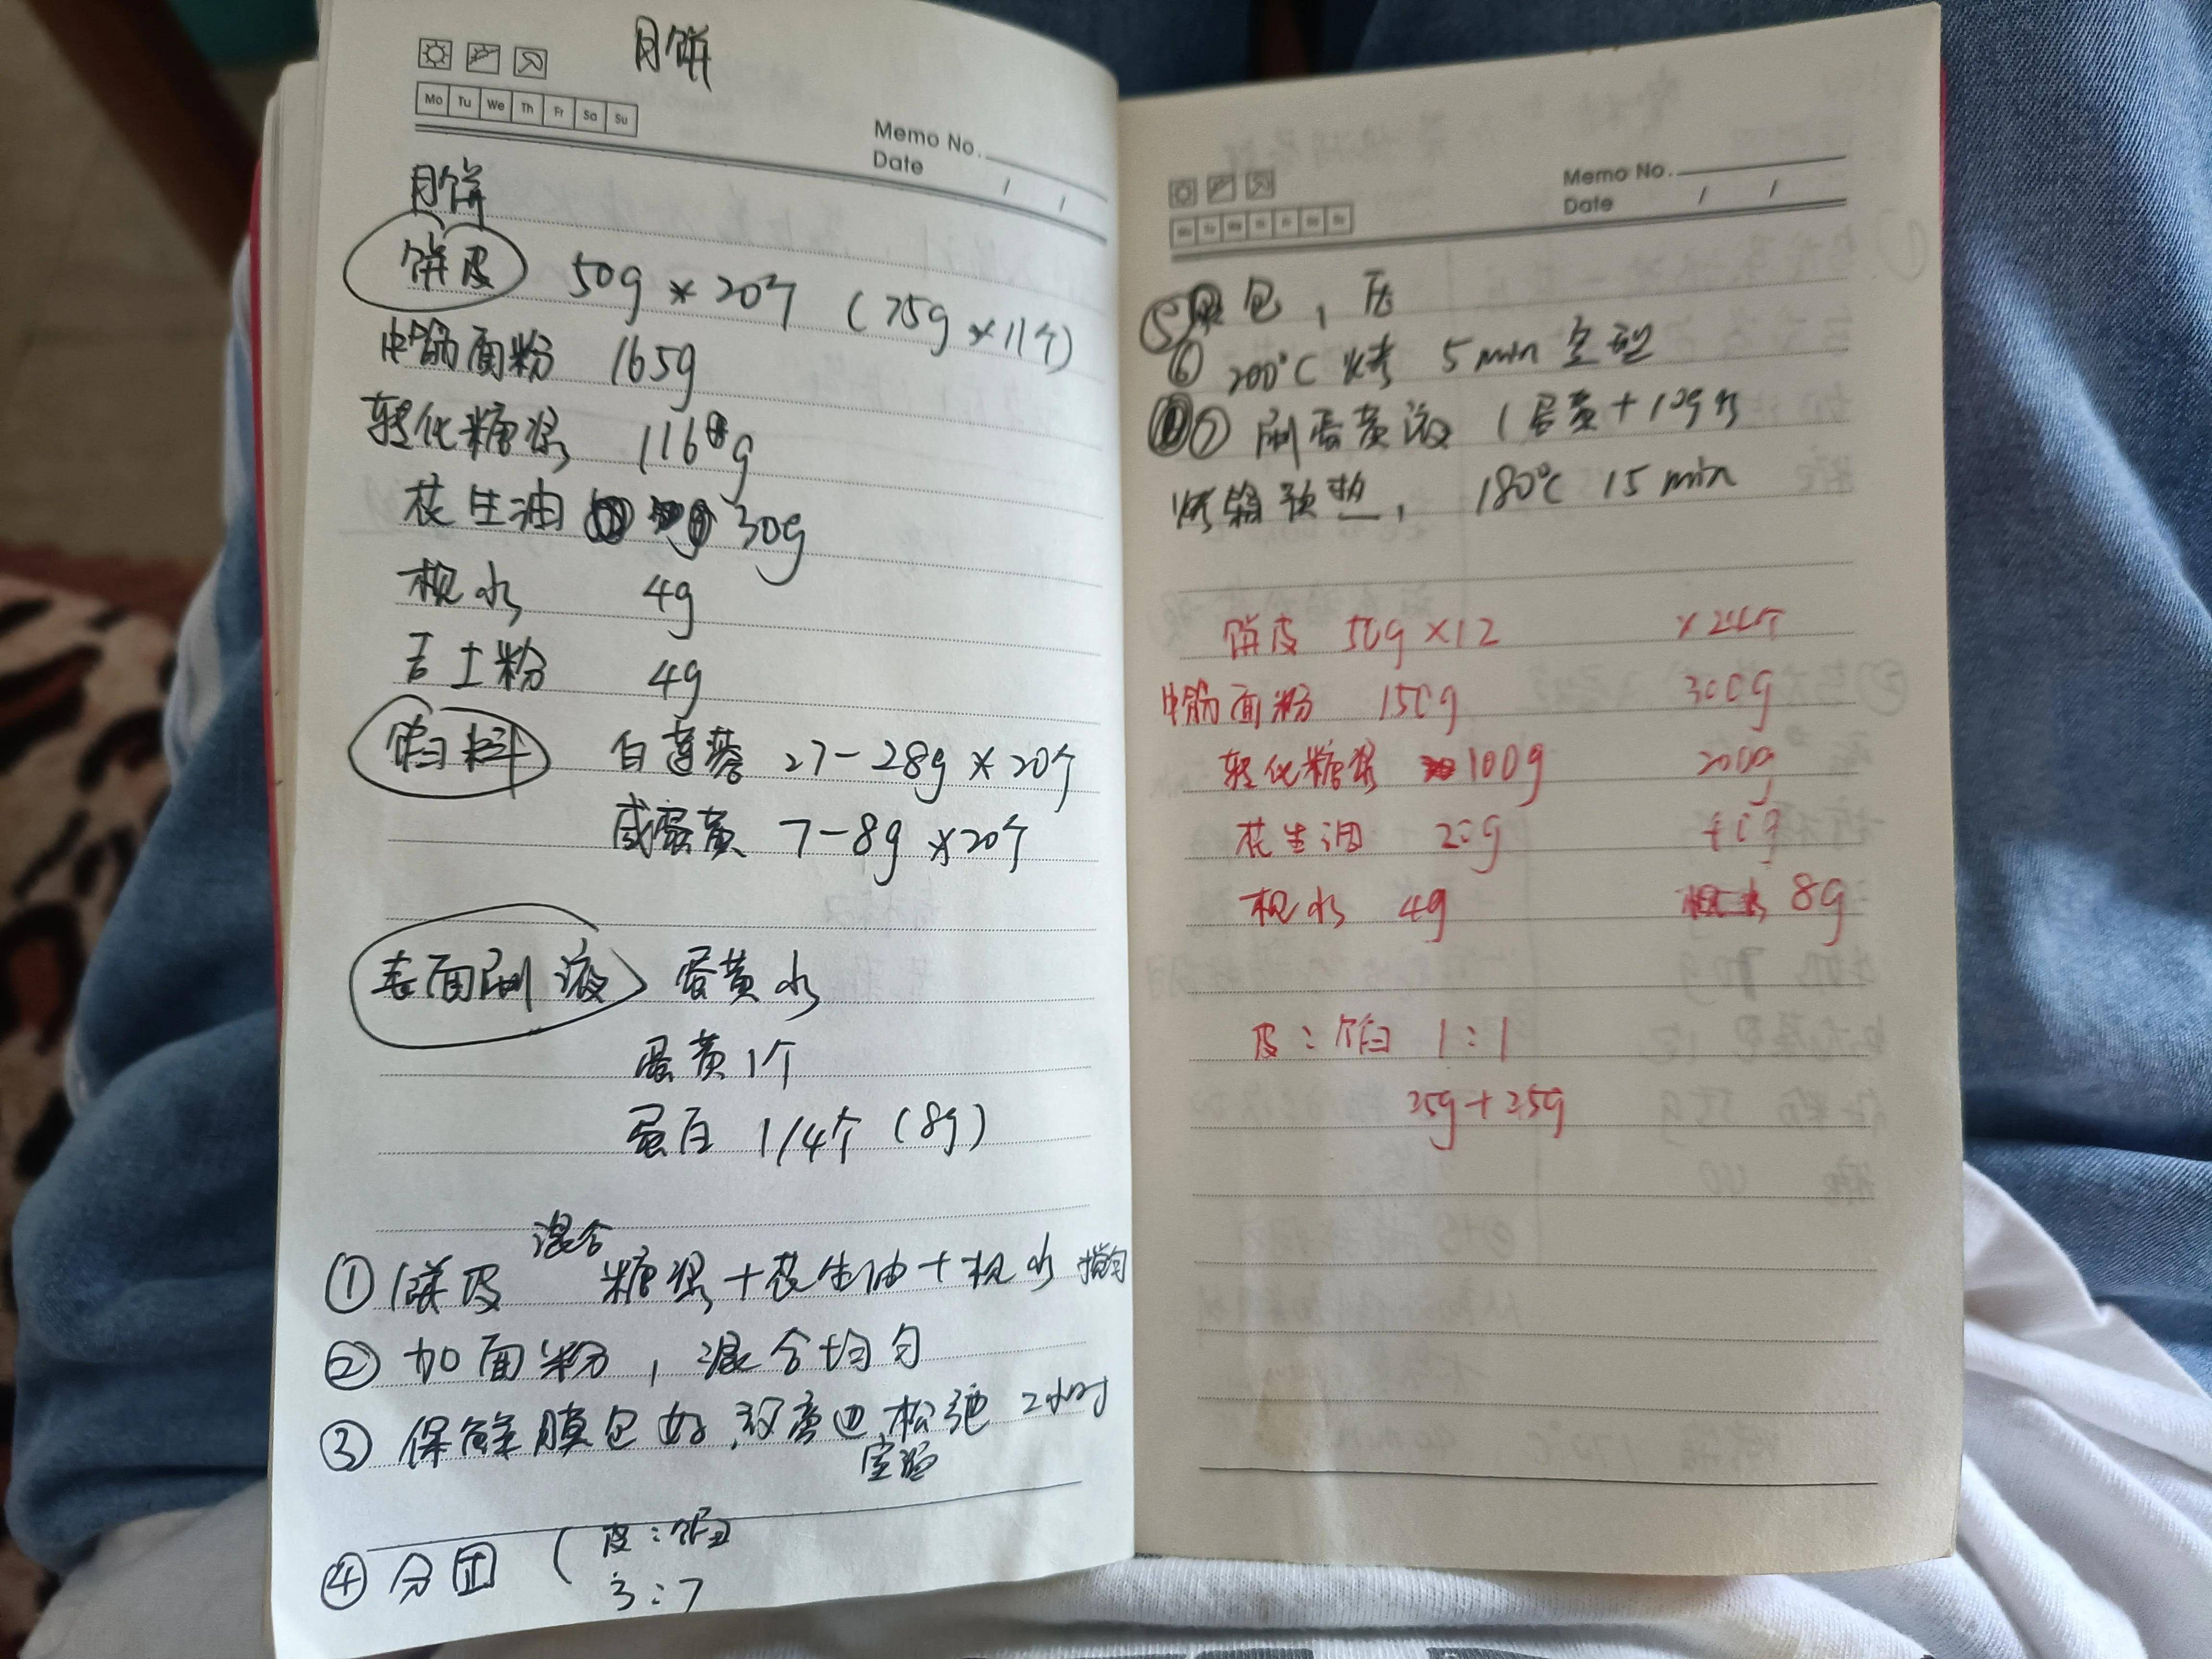 月饼
Mo Tu We Th Fr Sa Su
Memo No.
Date / /
月饼
饼皮 50g * 20个 (75g * 11个)
中筋面粉 165g
转化糖浆 116g
花生油 30g
枧水 4g
吉士粉 4g
馅料 白莲蓉 27-28g * 20个
咸蛋黄 7-8g * 20个
表面刷液 蛋黄水
蛋黄1个
蛋白 1/4个 (8g)
混合
① 饼皮 糖浆+花生油+枧水 搅匀
② 加面粉, 混合均匀
③ 保鲜膜包好 放旁边 松弛 2小时
室温
④ 分团 ( 皮:馅
3:7
Memo No.
Date / /
Mo Tu We Th Fr Sa Su
⑤ 包, 压
⑥ 200°C 烤 5 min 定型
⑦ 刷蛋黄液 1蛋黄+10g水
烤箱预热, 180°C 15 min
饼皮 50g ×12 ×24个
中筋面粉 150g 300g
转化糖浆 100g 200g
花生油 20g 40g
枧水 4g 8g
皮:馅 1:1
25g+25g